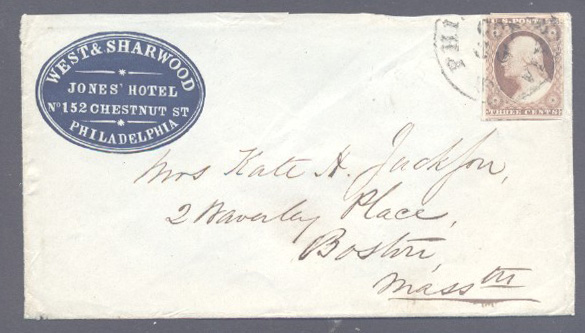 WEST & SHARWOOD
JONES' HOTEL
No 152 CHESTNUT ST
PHILADELPHIA
PHI
U.S. POSTAGE
THREE CENTS
Mrs Kate H. Jackson,
2 Waverley Place,
Boston,
Massth